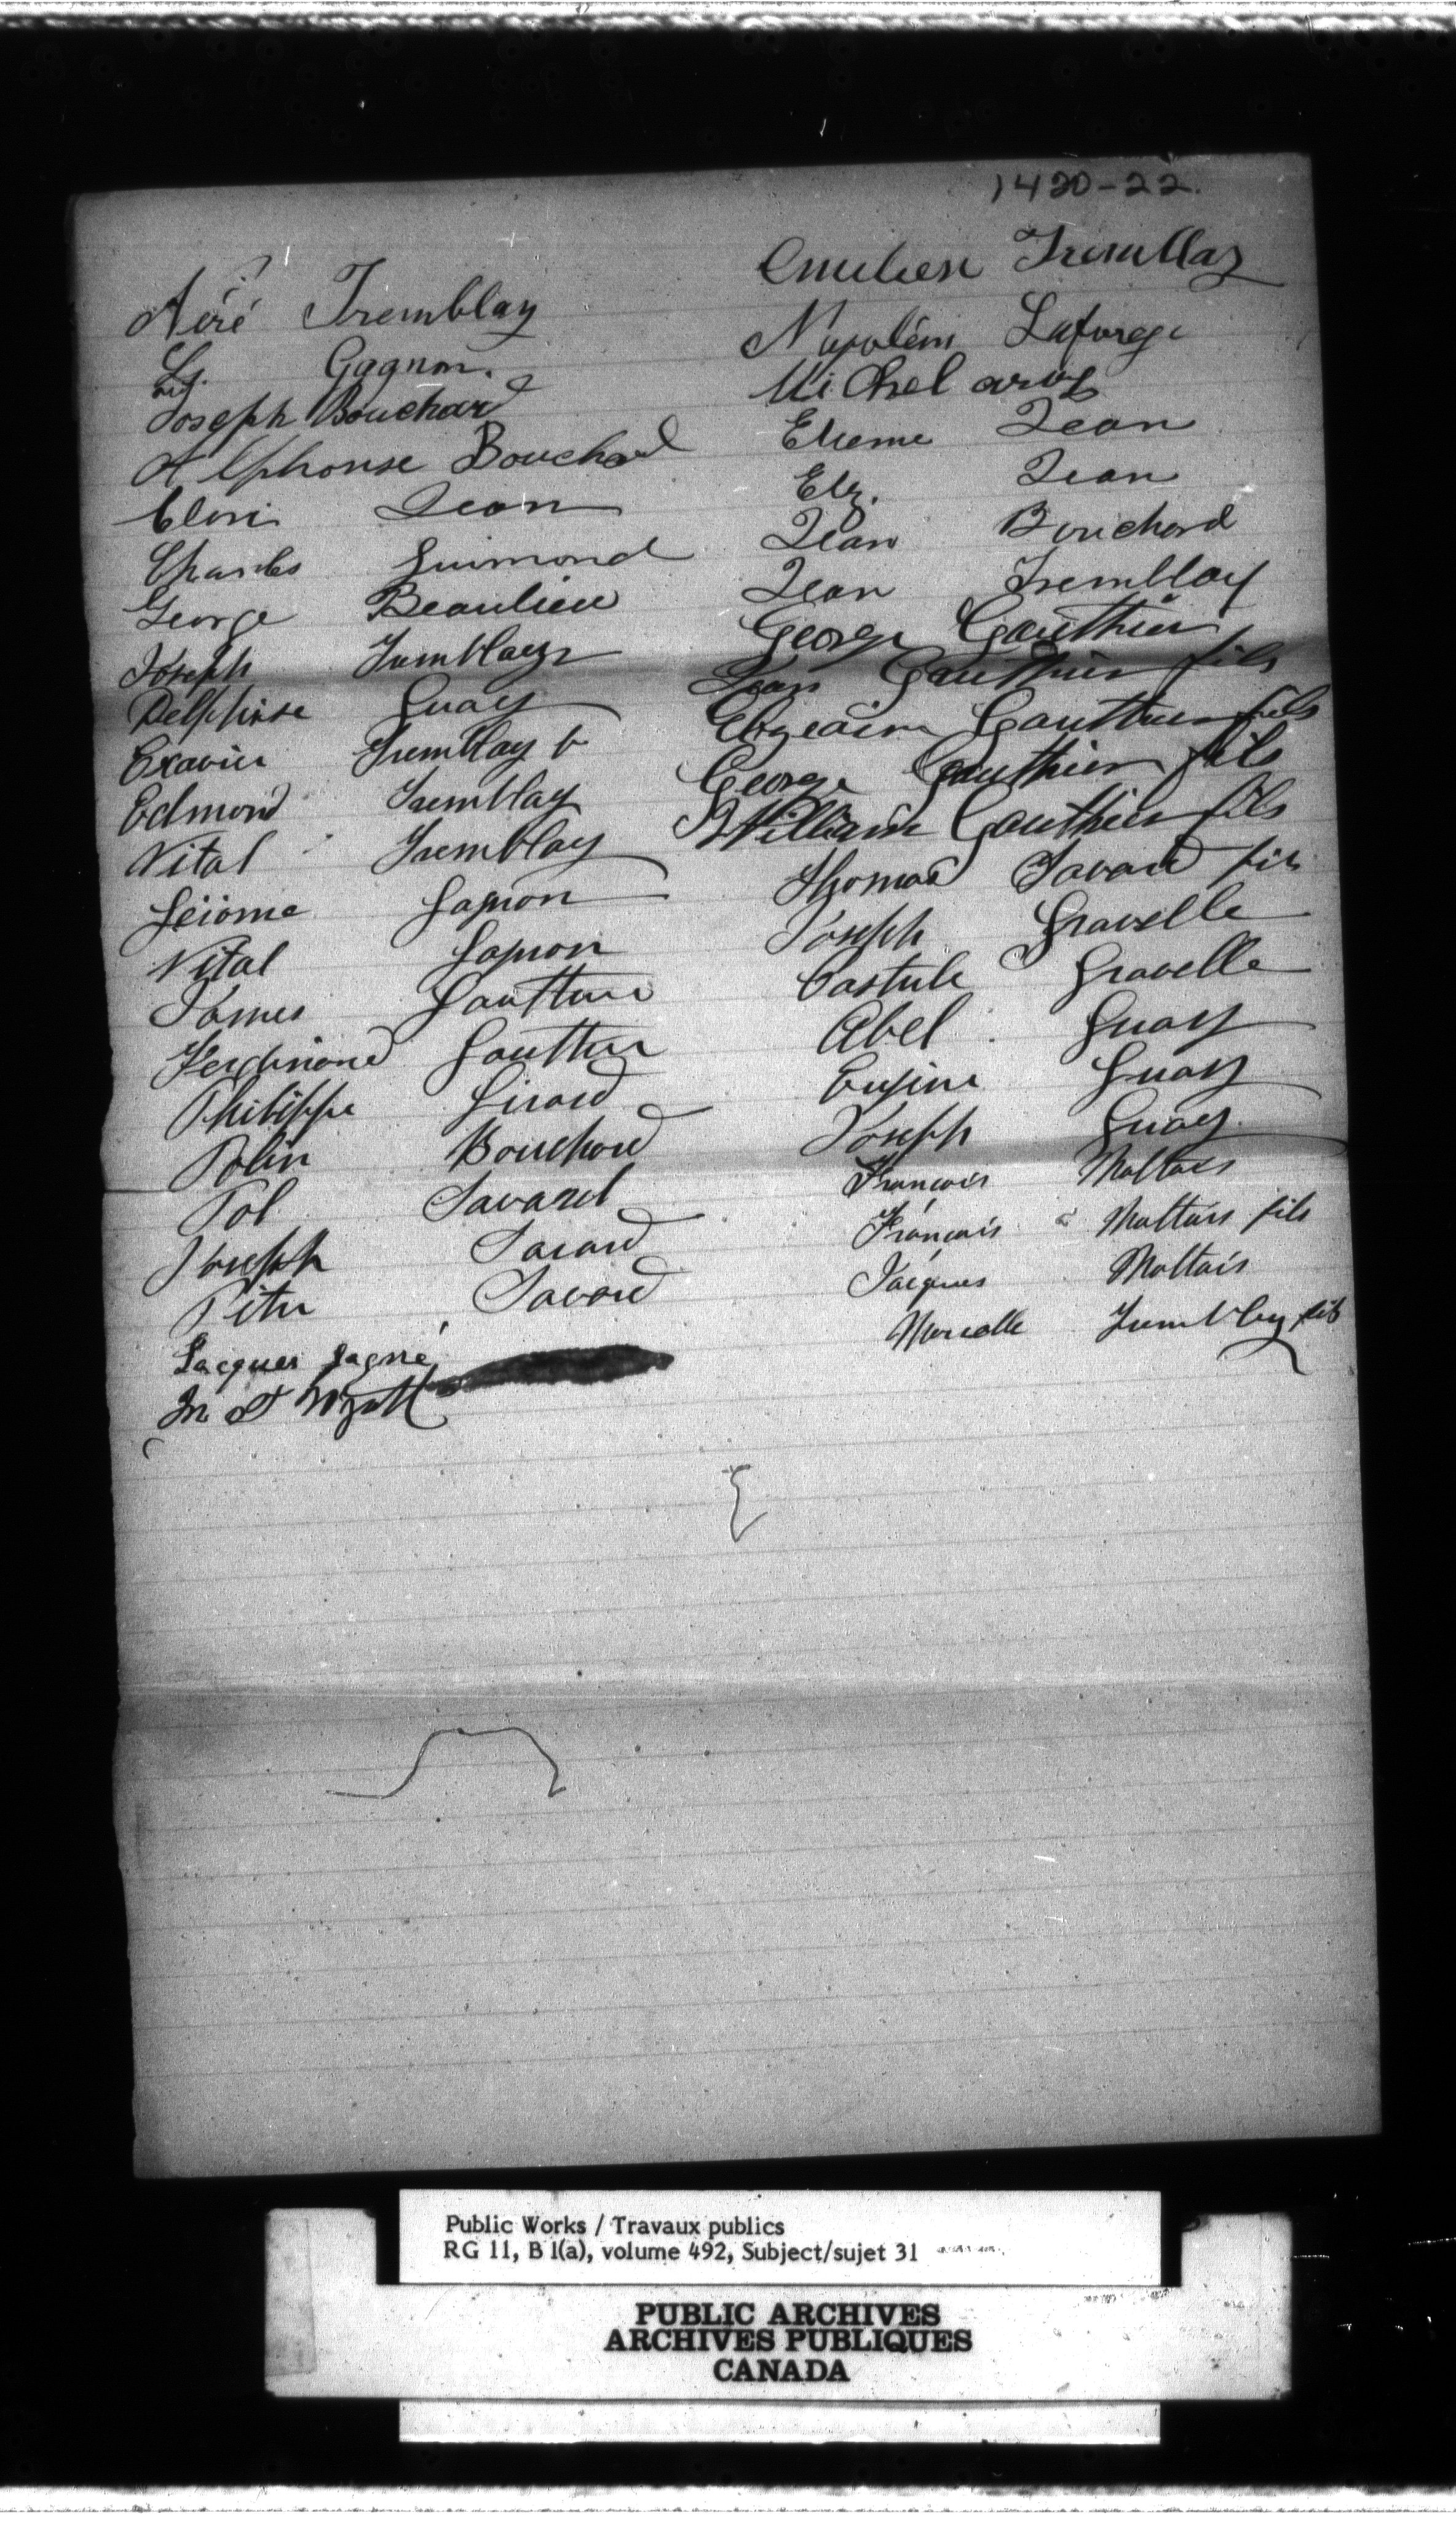 1420-22.
Aéré Tremblay
Ls. Gagnon.
Joseph Bouchard
Alphonse Bouchard
Clovis Jean
Charles Guimond
George Beaulieu
Joseph Tremblay
Delphise Guay
Exavier Tremblay
Edmond Tremblay
Vital Tremblay
Jérome Gagnon
Vital Gagnon
James Gauthier
Ferdinand Gauthier
Philippe Girard
Polin Bouchard
Pol Savard
Joseph Savard
Piter Savard
Jacques Gagné
Emilien Tremblay
Napoléon Laforge
Michel
Etienne Jean
Elz. Jean
Jean Bouchard
Jean Tremblay
George Gauthier
Jean Gauthier fils
Elzéaire Gauthier fils
George Gauthier fils
William Gauthier fils
Thomas Savard fils
Joseph Gravelle
Castule Gravelle
Abel Guay
Eugine Guay
Joseph Guay
François Maltais
François Maltais fils
Jacques Maltais
Marcelle Tremblay fils
Public Works / Travaux publics
RG 11, B 1(a), volume 492, Subject/sujet 31
PUBLIC ARCHIVES
ARCHIVES PUBLIQUES
CANADA